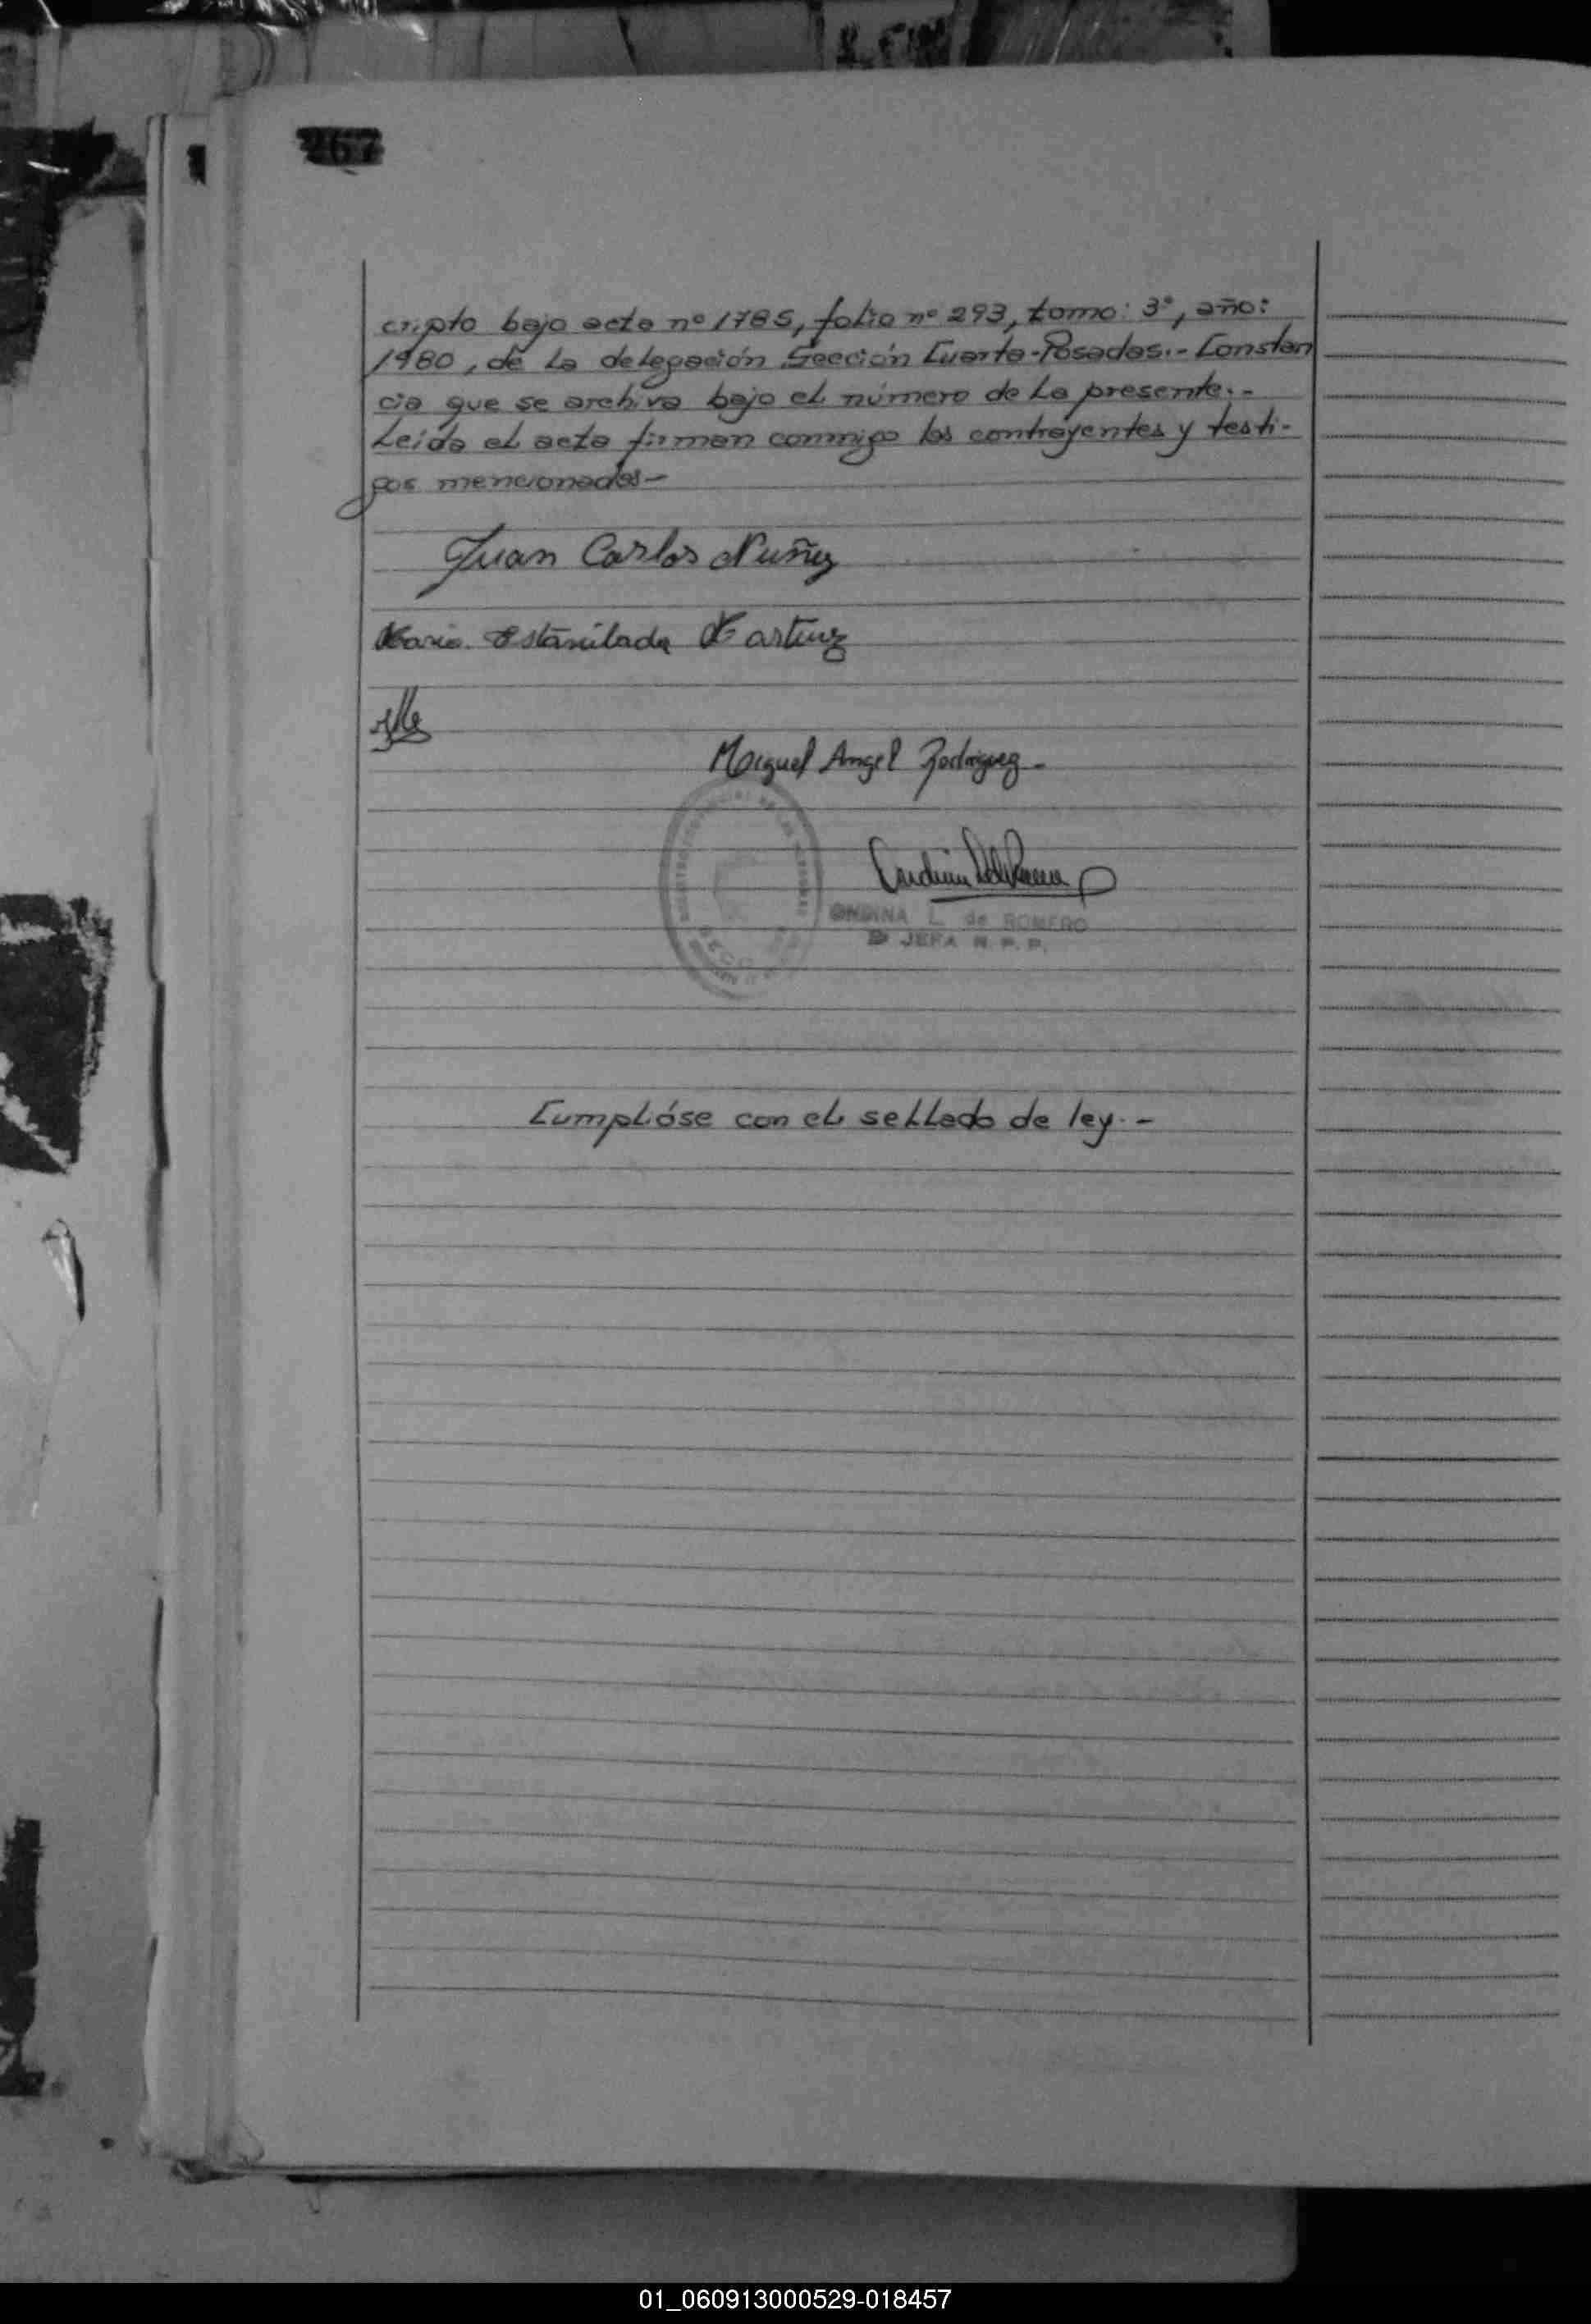 267
cripto bajo acta nº 1785, folio nº 293, tomo: 3º, año:
1980, de la delegación Sección Cuarta-Posadas.- Constan
cia que se archiva bajo el número de la presente.-
Leída el acta firman conmigo los contrayentes y testi-
gos mencionados-
Juan Carlos Nuñez
Maria Estanilada Martinez
Miguel Angel Rodriguez-
ONDINA L. de ROMERO
JEFA R. P. P.
Cumplióse con el sellado de ley.-
01_060913000529-018457